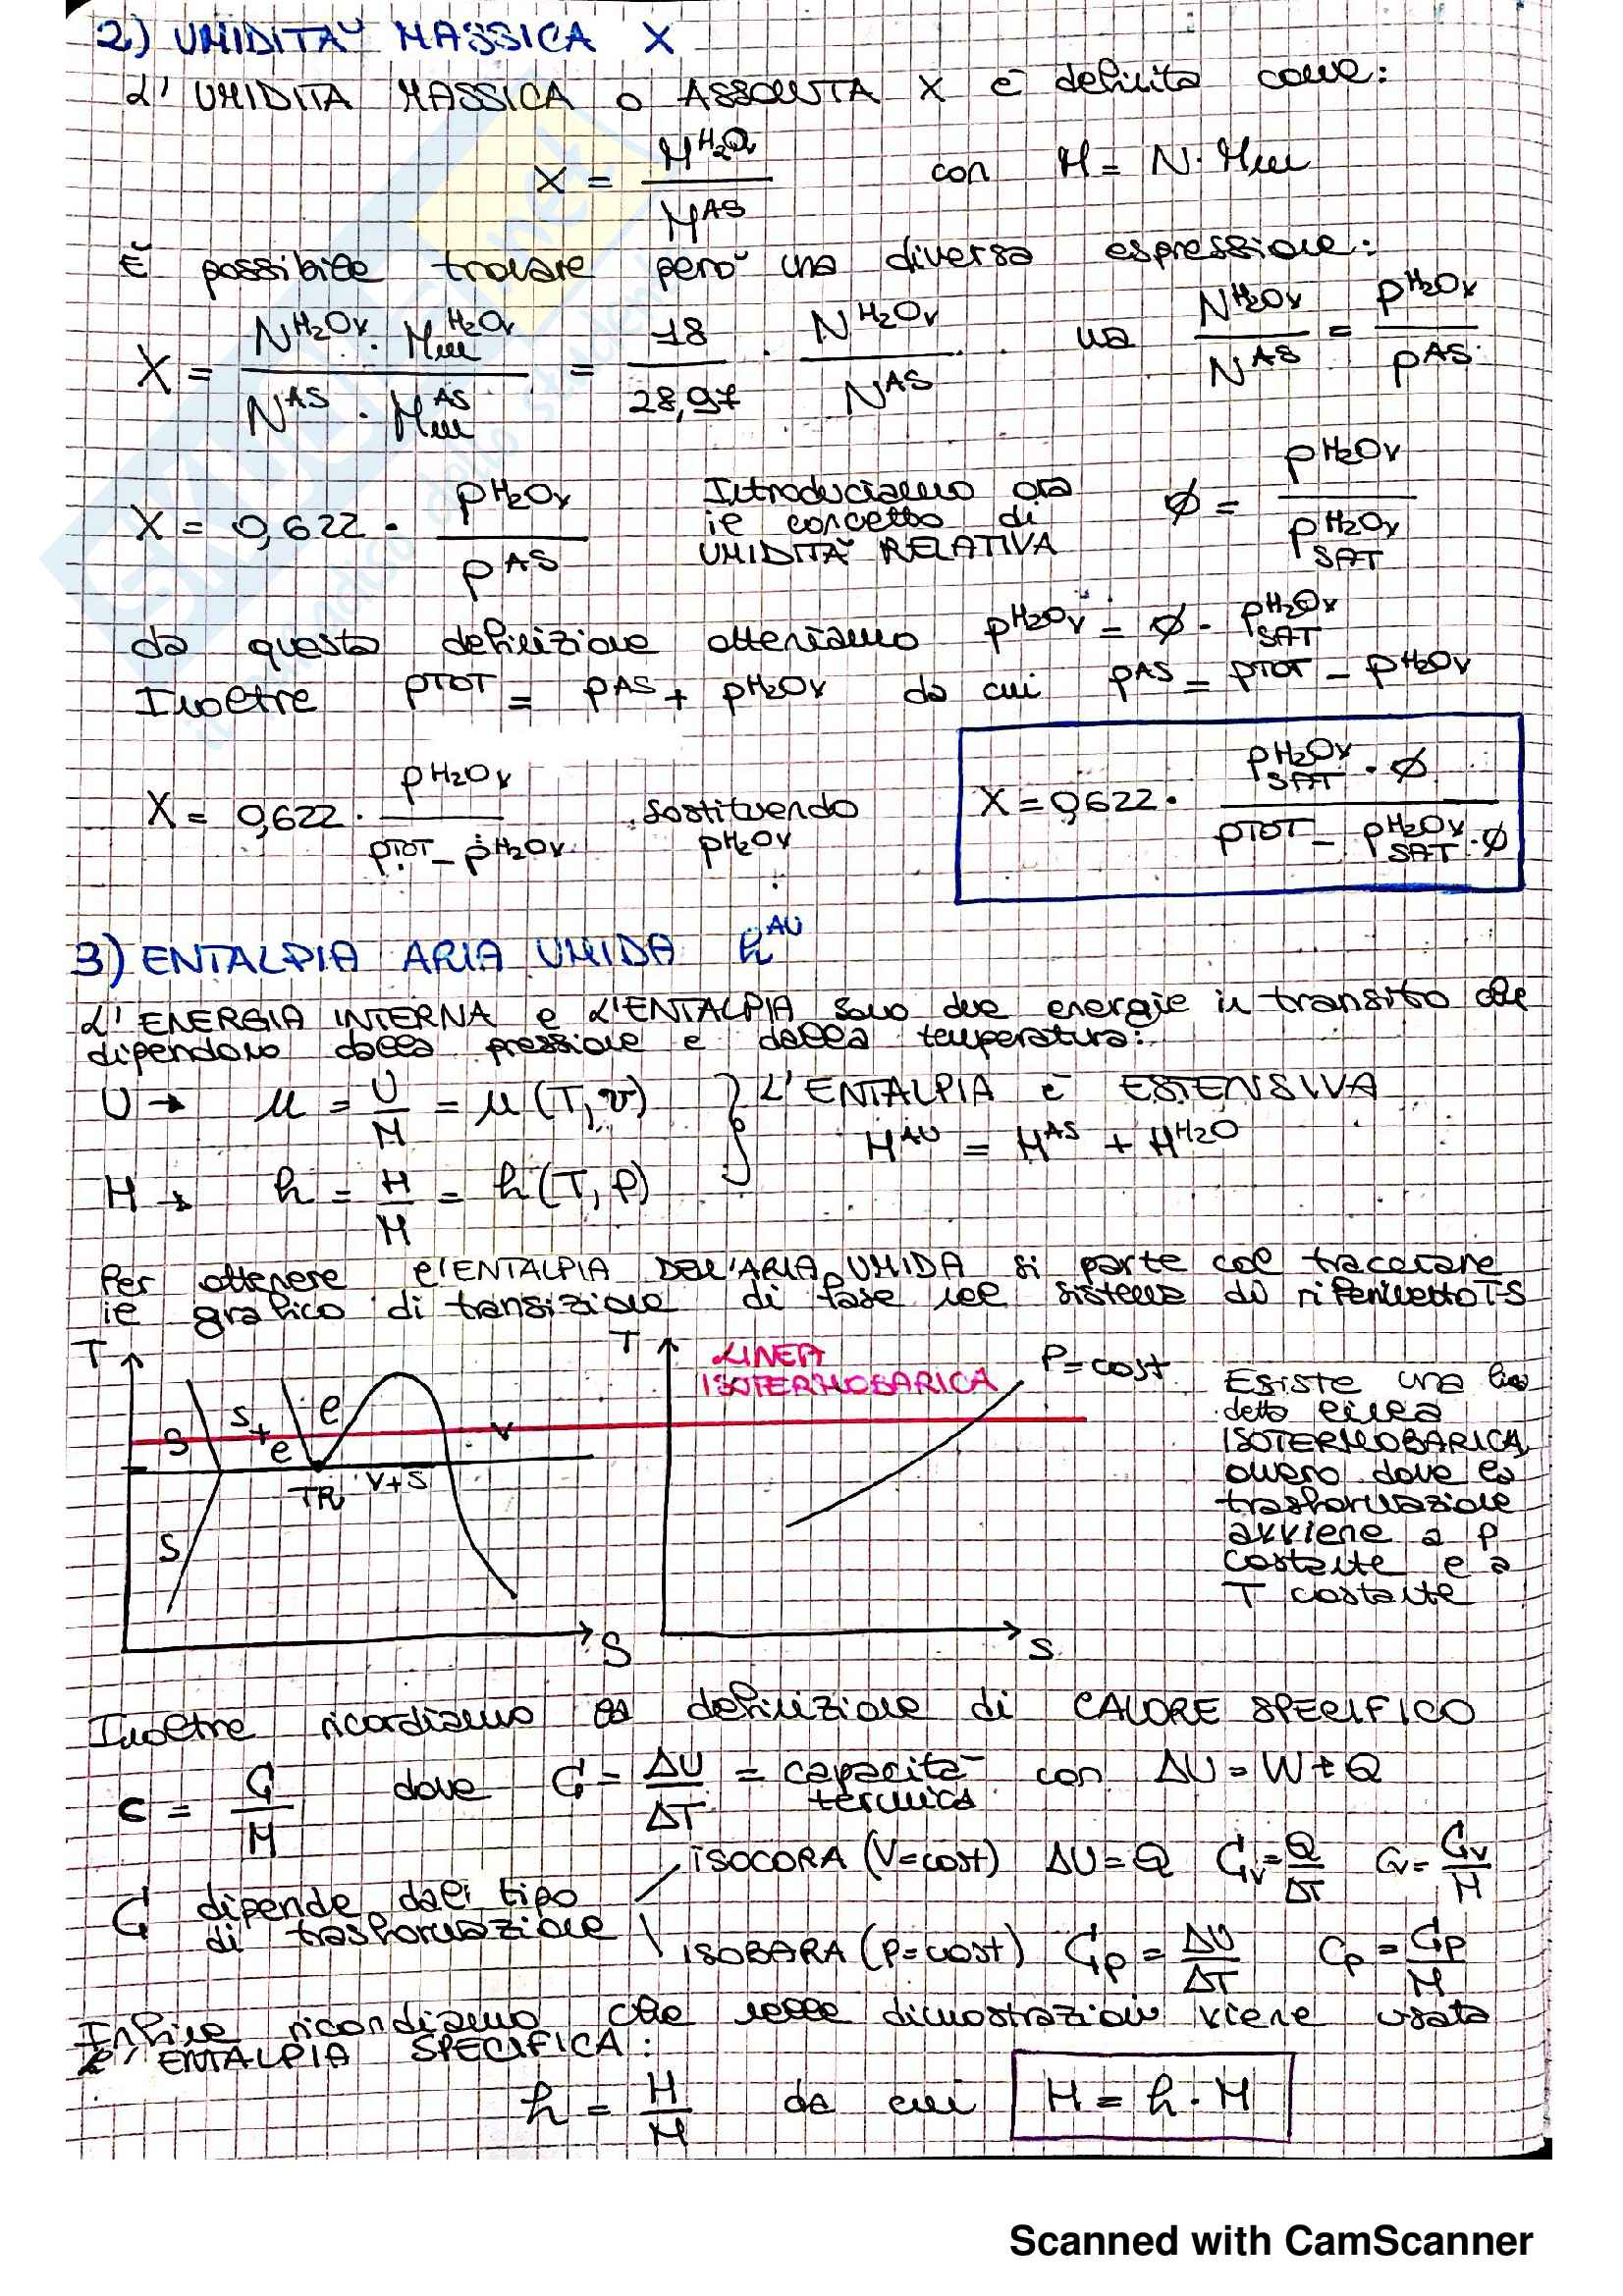 2) UMIDITÀ MASSICA X
L'UMIDITA MASSICA o ASSOLUTA X è definita come:
X = M^H₂Ov / M^AS con M = N · Mm
È possibile trovare però una diversa espressione:
X = N^H₂Ov · Mm^H₂Ov / N^AS · Mm^AS = 18 / 28,97 · N^H₂Ov / N^AS ma N^H₂Ov / N^AS = p^H₂Ov / p^AS
X = 0,622 · p^H₂Ov / p^AS Introduciamo ora il concetto di UMIDITÀ RELATIVA ∅ = p^H₂Ov / p^H₂Ov SAT
da questa definizione otteniamo p^H₂Ov = ∅ · p^H₂Ov SAT
Inoltre p^TOT = p^AS + p^H₂Ov da cui p^AS = p^TOT - p^H₂Ov
X = 0,622 · p^H₂Ov / p^TOT - p^H₂Ov sostituendo p^H₂Ov X = 0,622 · p^H₂Ov SAT · ∅ / p^TOT - p^H₂Ov SAT · ∅
3) ENTALPIA ARIA UMIDA h^AU
L'ENERGIA INTERNA e L'ENTALPIA sono due energie in transito che
dipendono dalla pressione e dalla temperatura:
U → u = U/M = u (T, v) } L'ENTALPIA è ESTENSIVA
H^AU = H^AS + H^H2O
H → h = H/M = h (T, P)
Per ottenere l'ENTALPIA DELL'ARIA UMIDA si parte col tracciare
il grafico di transizione di fase nel sistema di riferimento TS
T S S+e e v TR V+S S S
T LINEA ISOTERMOBARICA P=cost S
Esiste una linea
detta linea
ISOTERMOBARICA,
ovvero dove la
trasformazione
avviene a p
costante e a
T costante
Inoltre ricordiamo la definizione di CALORE SPECIFICO
c = C/M dove C = ΔU/ΔT = capacità termica con ΔU = W + Q
C dipende dal tipo di trasformazione
ISOCORA (V=cost) ΔU=Q Cv = Q/ΔT cv = Cv/M
ISOBARA (P=cost) Cp = ΔU/ΔT cp = Cp/M
Infine ricordiamo che nelle dimostrazioni viene usata
l'ENTALPIA SPECIFICA:
h = H/M da cui H = h · M
Scanned with CamScanner